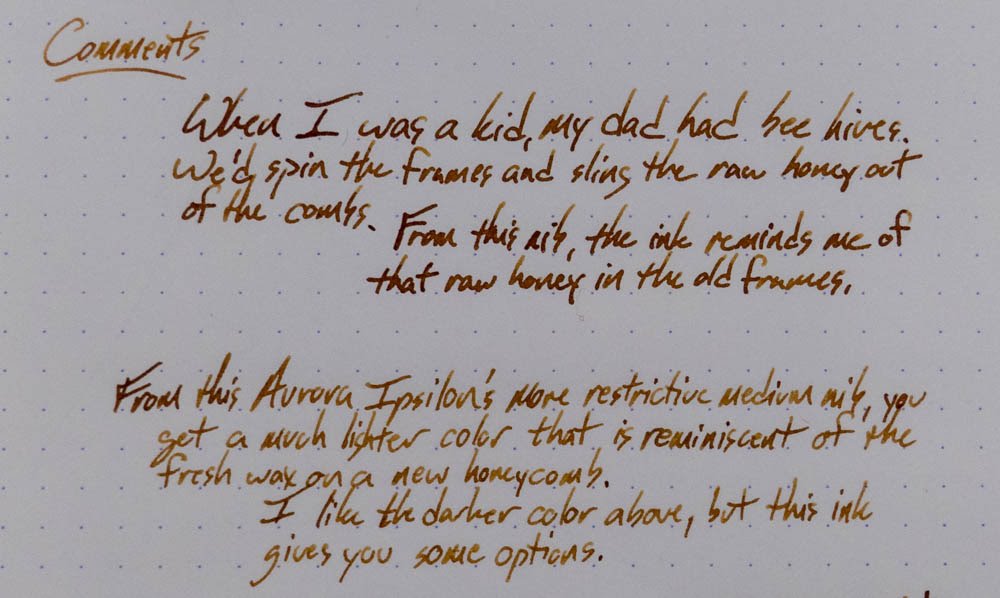 Comments
When I was a kid, my dad had bee hives.
We'd spin the frames and sling the raw honey out
of the combs.
From this nib, the ink reminds me of
that raw honey in the old frames.
From this Aurora Ipsilon's more restrictive medium nib, you
get a much lighter color that is reminiscent of the
fresh wax on a new honeycomb.
I like the darker color above, but this ink
gives you some options.